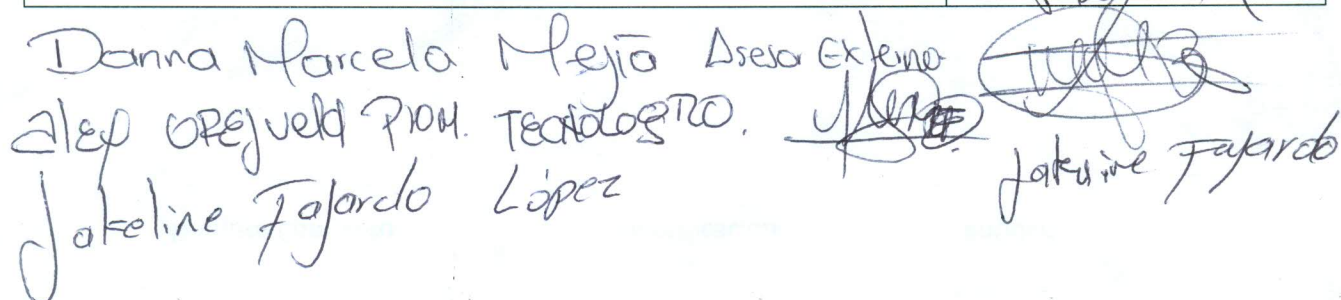 Danna Marcela Mejía Asesor Externo
alex OREJUELA PROM. TECNOLOGICO.
Jakeline Fajardo López Jakeline Fajardo